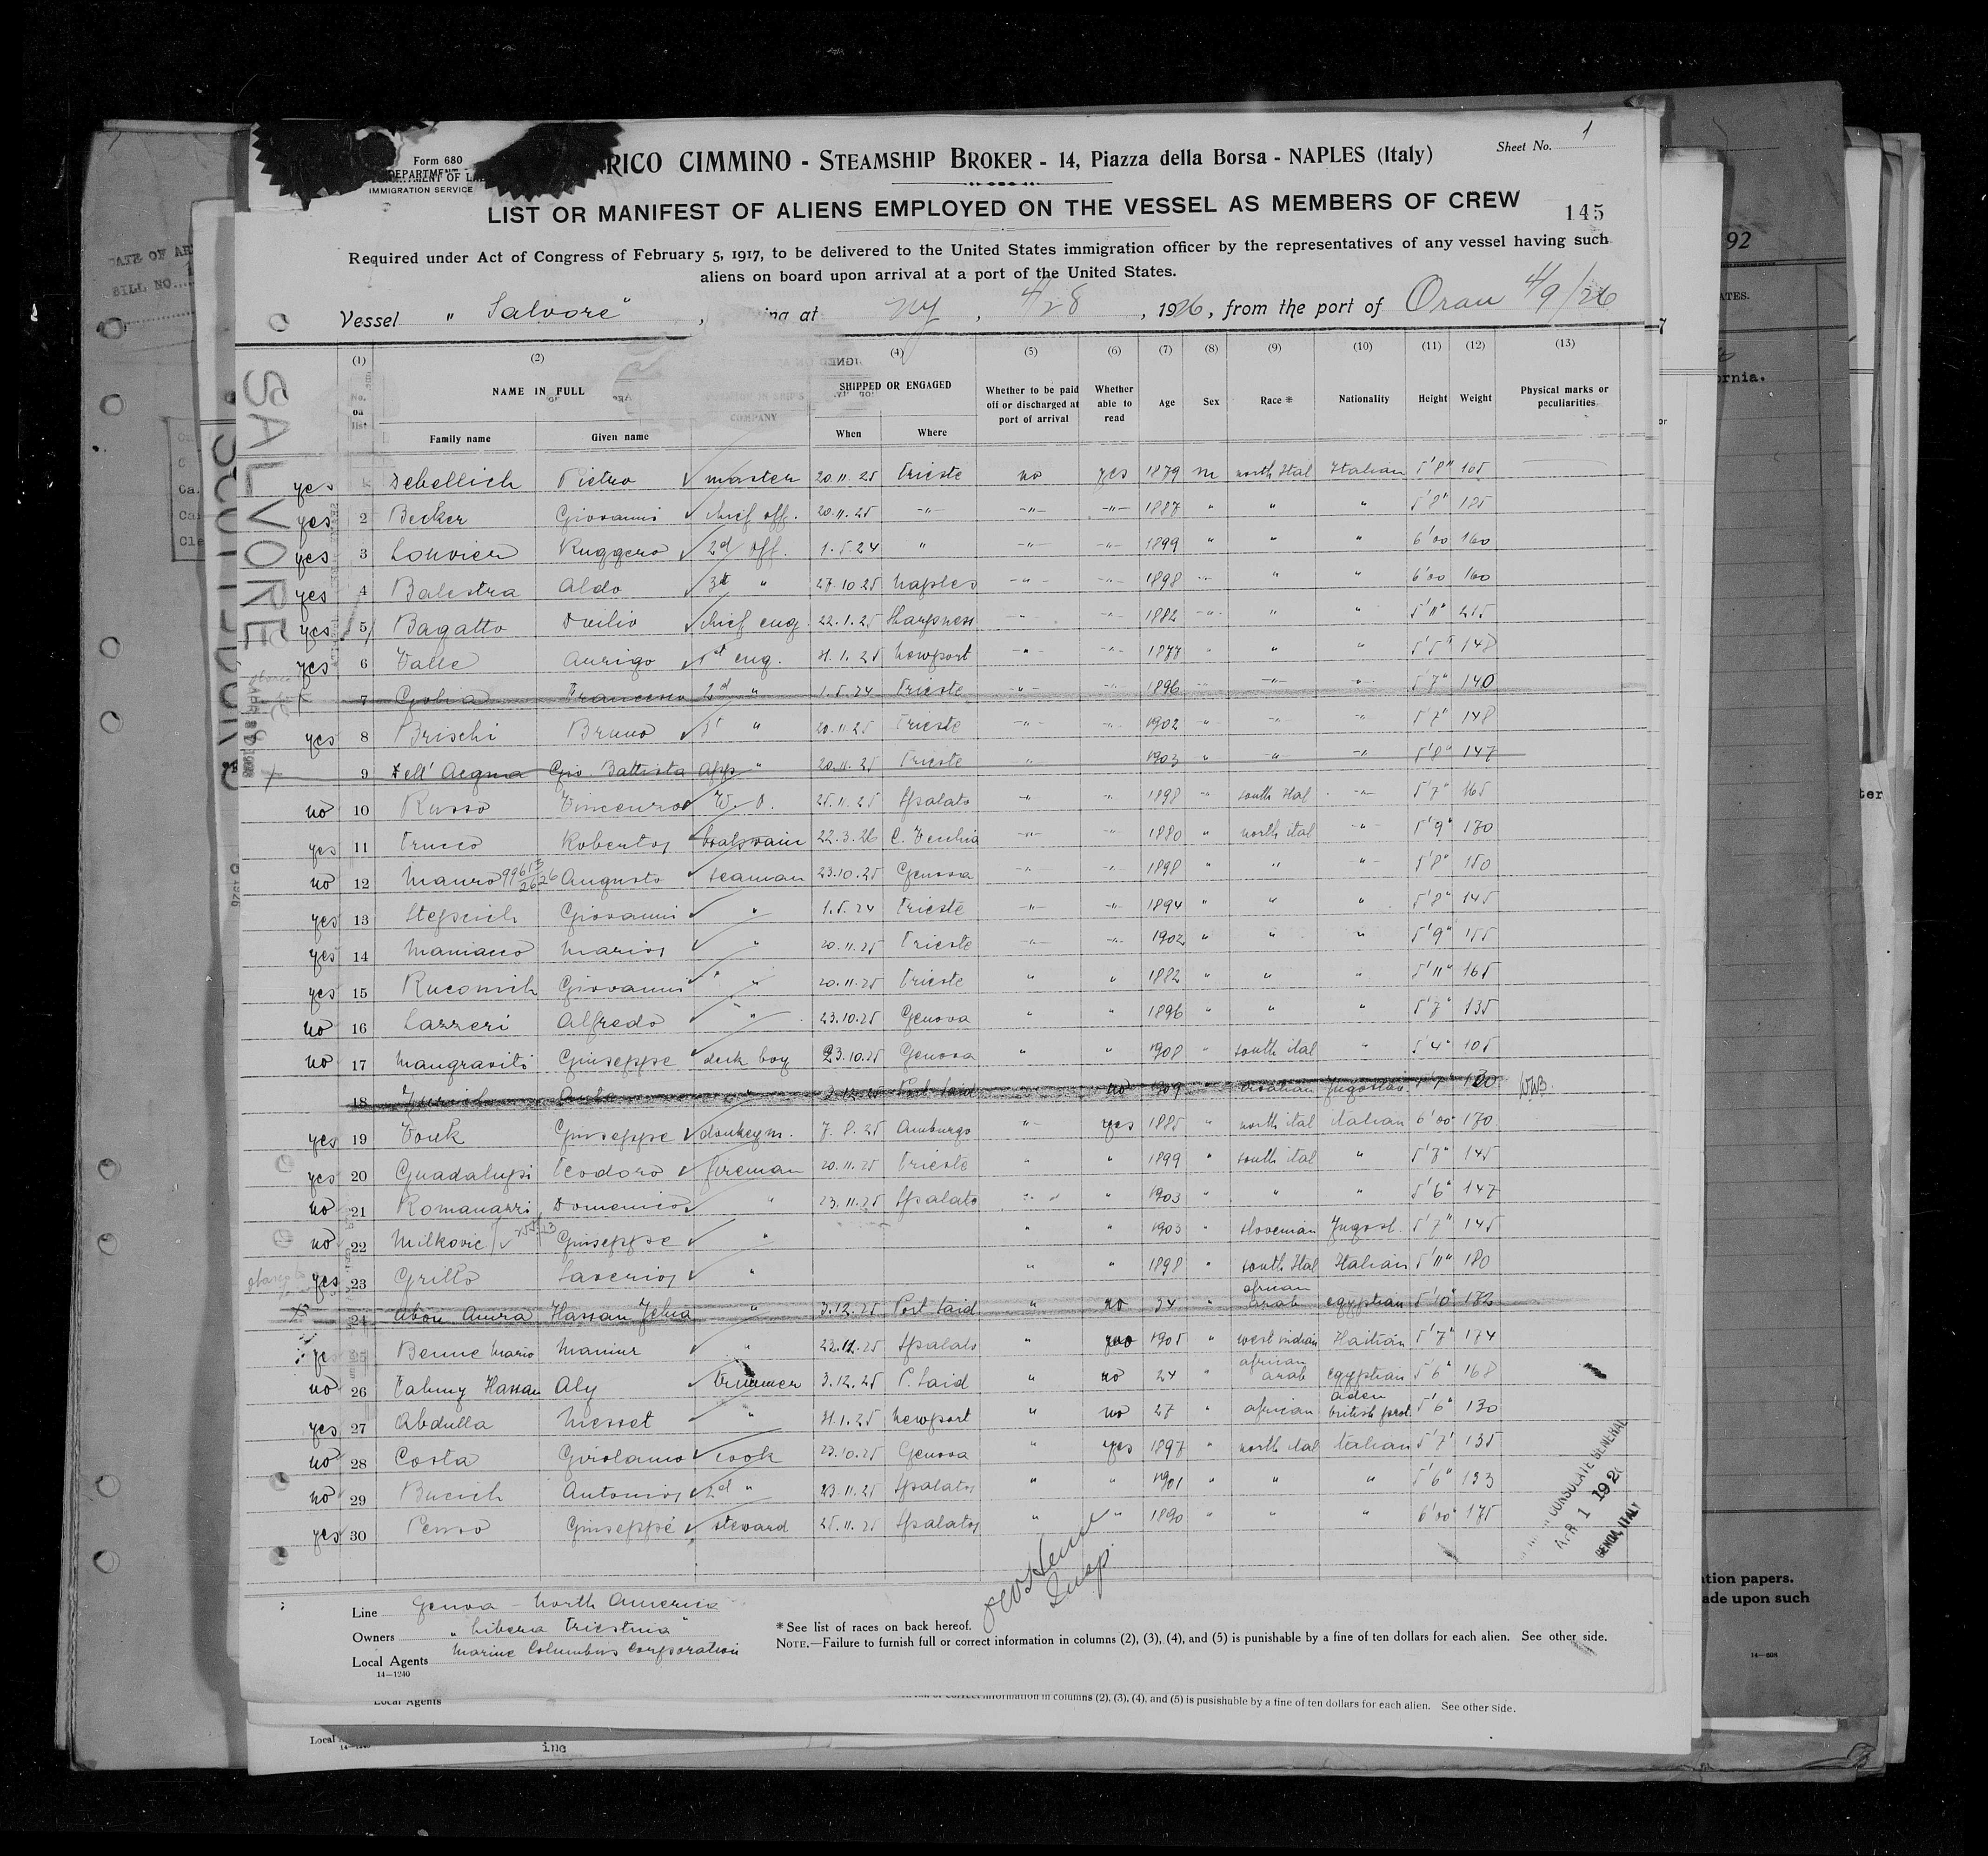 Form 680
DEPARTMENT OF LA
IMMIGRATION SERVICE
RICO CIMMINO - STEAMSHIP BROKER - 14, Piazza della Borsa - NAPLES (Italy)
Sheet No. 1
LIST OR MANIFEST OF ALIENS EMPLOYED ON THE VESSEL AS MEMBERS OF CREW
145
Required under Act of Congress of February 5, 1917, to be delivered to the United States immigration officer by the representatives of any vessel having such
aliens on board upon arrival at a port of the United States.
Vessel "Salvore", ing at NY, 4/28, 1926, from the port of Oran 4/9/26
(1) (2) (4) (5) (6) (7) (8) (9) (10) (11) (12) (13)
No. on list NAME IN FULL Family name Given name COMPANY SHIPPED OR ENGAGED When Where Whether to be paid off or discharged at port of arrival Whether able to read Age Sex Race * Nationality Height Weight Physical marks or peculiarities
SALVORE
yes Pietro master 20.11.25 Trieste no yes 1879 m north Ital Italian 5'8" 105
yes 2 Becker Giovanni chief off. 20.11.25 -"- -"- -"- 1887 " " " 5'8"
yes 3 Louvier Ruggero 2d off. 1.5.24 " -"- -"- 1899 " " " 6'00 160
yes 4 Balestra Aldo 3d " 27.10.25 Naples -"- -"- 1898 -"- " " 6'00 160
yes 5 Bagatto Duilio chief eng. 22.1.25 Sharpness -"- -"- 1882 -"- " " 5'11" 215
yes 6 Valle Aurigo 1st eng. 11.1.25 Newport -"- -"- 1877 " " " 5'5" 148
7 Francesco 2d " 1.5.24 Trieste -"- -"- 1896 -"- -"- -"- 5'7" 140
yes 8 Brischi Bruno " 20.11.25 Trieste -"- -"- 1902 -"- -"- -"- 5'7" 148
9 Dell'Acqua Gio. Battista App " 20.11.25 Trieste -"- 1903 " -"- -"- 5'8" 147
no 10 Russo Vincenzo W.O. 25.11.25 Spalato -"- " 1898 " south Ital -"- 5'7" 165
yes 11 Trucco Roberto boatswain 22.3.26 C. Vecchia -"- -"- 1880 " north ital -"- 5'9" 170
no 12 Mauro Augusto seaman 23.10.25 Genova -"- -"- 1898 " " " 5'8" 150
yes 13 Giovanni " 1.5.24 Trieste -"- -"- 1894 " " " 5'8" 145
yes 14 Maniacco Mario " 20.11.25 Trieste -"- -"- 1902 " " " 5'9" 155
yes 15 Giovanni " 20.11.25 Trieste " " 1882 " " " 5'11" 165
no 16 Lazzeri Alfredo " 23.10.25 Genova " " 1896 " " " 5'7" 135
no 17 Mangraviti Giuseppe deck boy 23.10.25 Genova " " 1908 " south ital " 5'4" 105
18 3.12.25 Port Said no 1909 " croatian Jugoslav 5'7" 130 WWB.
yes 19 Vouk Giuseppe donkeym. 7.8.25 Amburgo " yes 1885 " north ital italian 6'00 170
yes 20 Guadalupi Teodoro fireman 20.11.25 Trieste " " 1899 " south ital " 5'7" 145
no 21 Romanazzi Domenico " 23.11.25 Spalato " " 1903 " " " 5'6" 147
no 22 Milkovic Giuseppe " " " 1903 " slovenian Jugosl. 5'7" 145
yes 23 Grillo Saverio " " " 1898 " south Ital Italian 5'11" 180
24 Abou Amra Hassan " 3.12.25 Port Said " no 34 " african arab egyptian 5'10" 182
Benne Mario " Spalato " 1905 " west indian Haitian 5'7" 174
no 26 Fahmy Hassan Aly trimmer 3.12.25 P. Said " no 24 " african arab egyptian 5'6" 168
yes 27 Abdulla Messet " 11.1.25 Newport " no 27 " african aden british prot. 5'6" 130
no 28 Costa Girolamo cook 23.10.25 Genova " yes 1897 " north ital italian 5'7" 135
no 29 Bucich Antonio 2d " 23.11.25 Spalato " " 1901 " " " 5'6" 133
yes 30 Penso Giuseppe steward 25.11.25 Spalato " " 1890 " " " 6'00 175
CONSULATE GENERAL
APR 1 192
GENOA, ITALY
Insp.
Line Genova - North America
Owners "Libera Triestina"
Local Agents Marine Columbus Corporation
14—1240
* See list of races on back hereof.
NOTE.—Failure to furnish full or correct information in columns (2), (3), (4), and (5) is punishable by a fine of ten dollars for each alien. See other side.
Local Agents
information in columns (2), (3), (4), and (5) is punishable by a fine of ten dollars for each alien. See other side.
Local
ing
DATE OF AR
BILL NO.
92
ATES.
ornia.
ter
tion papers.
ade upon such